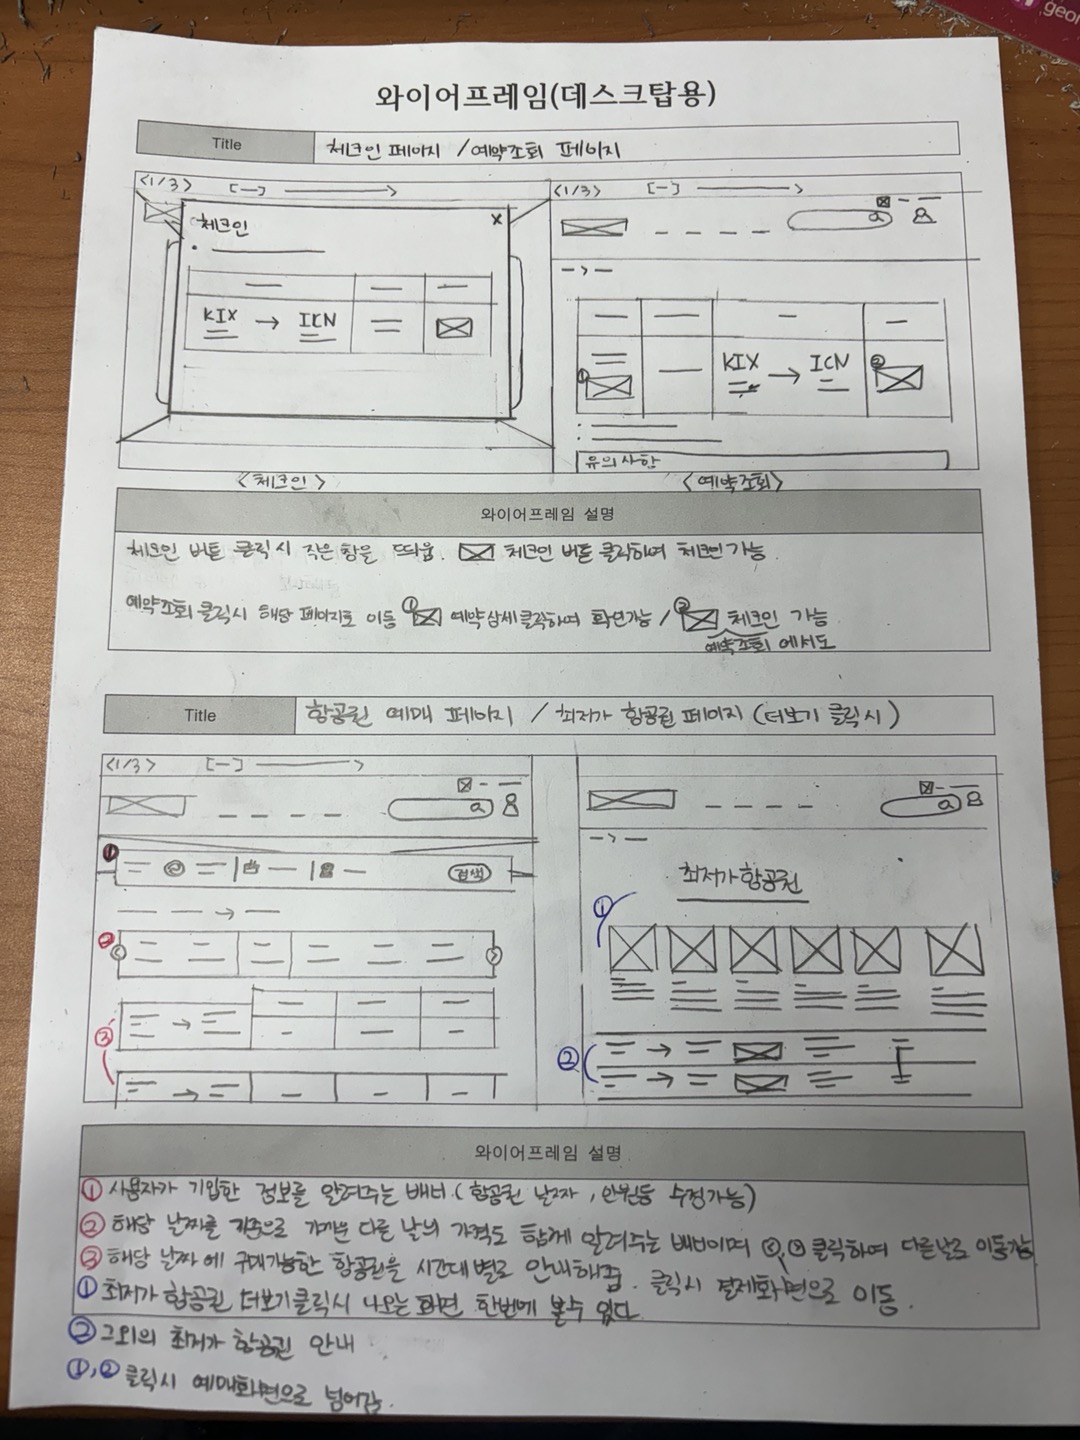 geor
와이어프레임(데스크탑용)
Title 체크인 페이지 / 예약조회 페이지
<1/3> [—]
<1/3> [—]
체크인 X
KIX → ICN
① KIX → ICN ②
유의사항
<체크인>
<예약조회>
와이어프레임 설명
체크인 버튼 클릭시 작은 창을 띄움. 체크인 버튼 클릭하여 체크인 가능.
예약조회 클릭시 해당 페이지로 이동 ① 예약상세 클릭하여 확인가능 / ② 체크인 가능
예약조회 에서도
Title 항공권 예매 페이지 / 최저가 항공권 페이지 (더보기 클릭시)
<1/3> [—]
① 검색
②
③
최저가 항공권
①
②
와이어프레임 설명
① 사용자가 기입한 정보를 알려주는 배너. (항공권 날짜, 인원등 수정가능)
② 해당 날짜를 기준으로 가까운 다른 날의 가격도 함께 알려주는 배너이며 <, > 클릭하여 다른날로 이동가능
③ 해당 날짜에 구매가능한 항공권을 시간대별로 안내해줌. 클릭시 결제화면으로 이동.
① 최저가 항공권 더보기 클릭시 나오는 화면 한번에 볼수 있다
② 그외의 최저가 항공권 안내
①,② 클릭시 예매화면으로 넘어감.